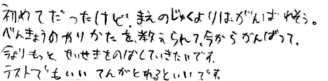 初めてだったけど、まえのじゅくよりはがんばれそう。
べんきょうのやりかたを教えられて、今からがんばって、
今よりもっと、せいせきをのばしていきたいです。
テストでもいいてんがとれるといいです。